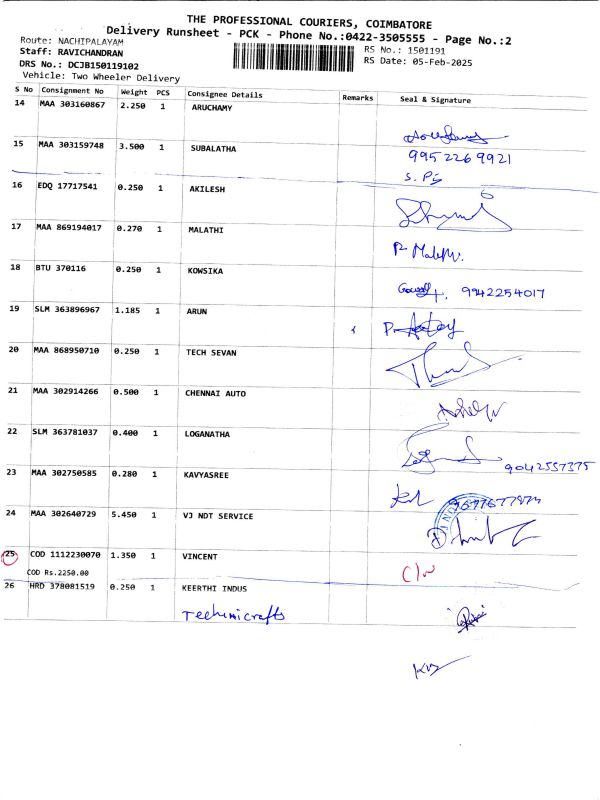 THE PROFESSIONAL COURIERS, COIMBATORE
Delivery Runsheet - PCK - Phone No.:0422-3505555 - Page No.:2
Route: NACHIPALAYAM
RS No.: 1501191
Staff: RAVICHANDRAN
RS Date: 05-Feb-2025
DRS No.: DCJB150119102
Vehicle: Two Wheeler Delivery
S No Consignment No Weight PCS Consignee Details Remarks Seal & Signature
14 MAA 303160867 2.250 1 ARUCHAMY
15 MAA 303159748 3.500 1 SUBALATHA 995 226 9921
16 EDQ 17717541 0.250 1 AKILESH
17 MAA 869194017 0.270 1 MALATHI
18 BTU 370116 0.250 1 KOWSIKA 9942254017
19 SLM 363896967 1.185 1 ARUN
20 MAA 868950710 0.250 1 TECH SEVAN
21 MAA 302914266 0.500 1 CHENNAI AUTO
22 SLM 363781037 0.400 1 LOGANATHA 9042557375
23 MAA 302750585 0.280 1 KAVYASREE
24 MAA 302640729 5.450 1 VJ NDT SERVICE
25 COD 1112230070 1.350 1 VINCENT
COD Rs.2250.00
26 HRD 378081519 0.250 1 KEERTHI INDUS
Techinicrafts